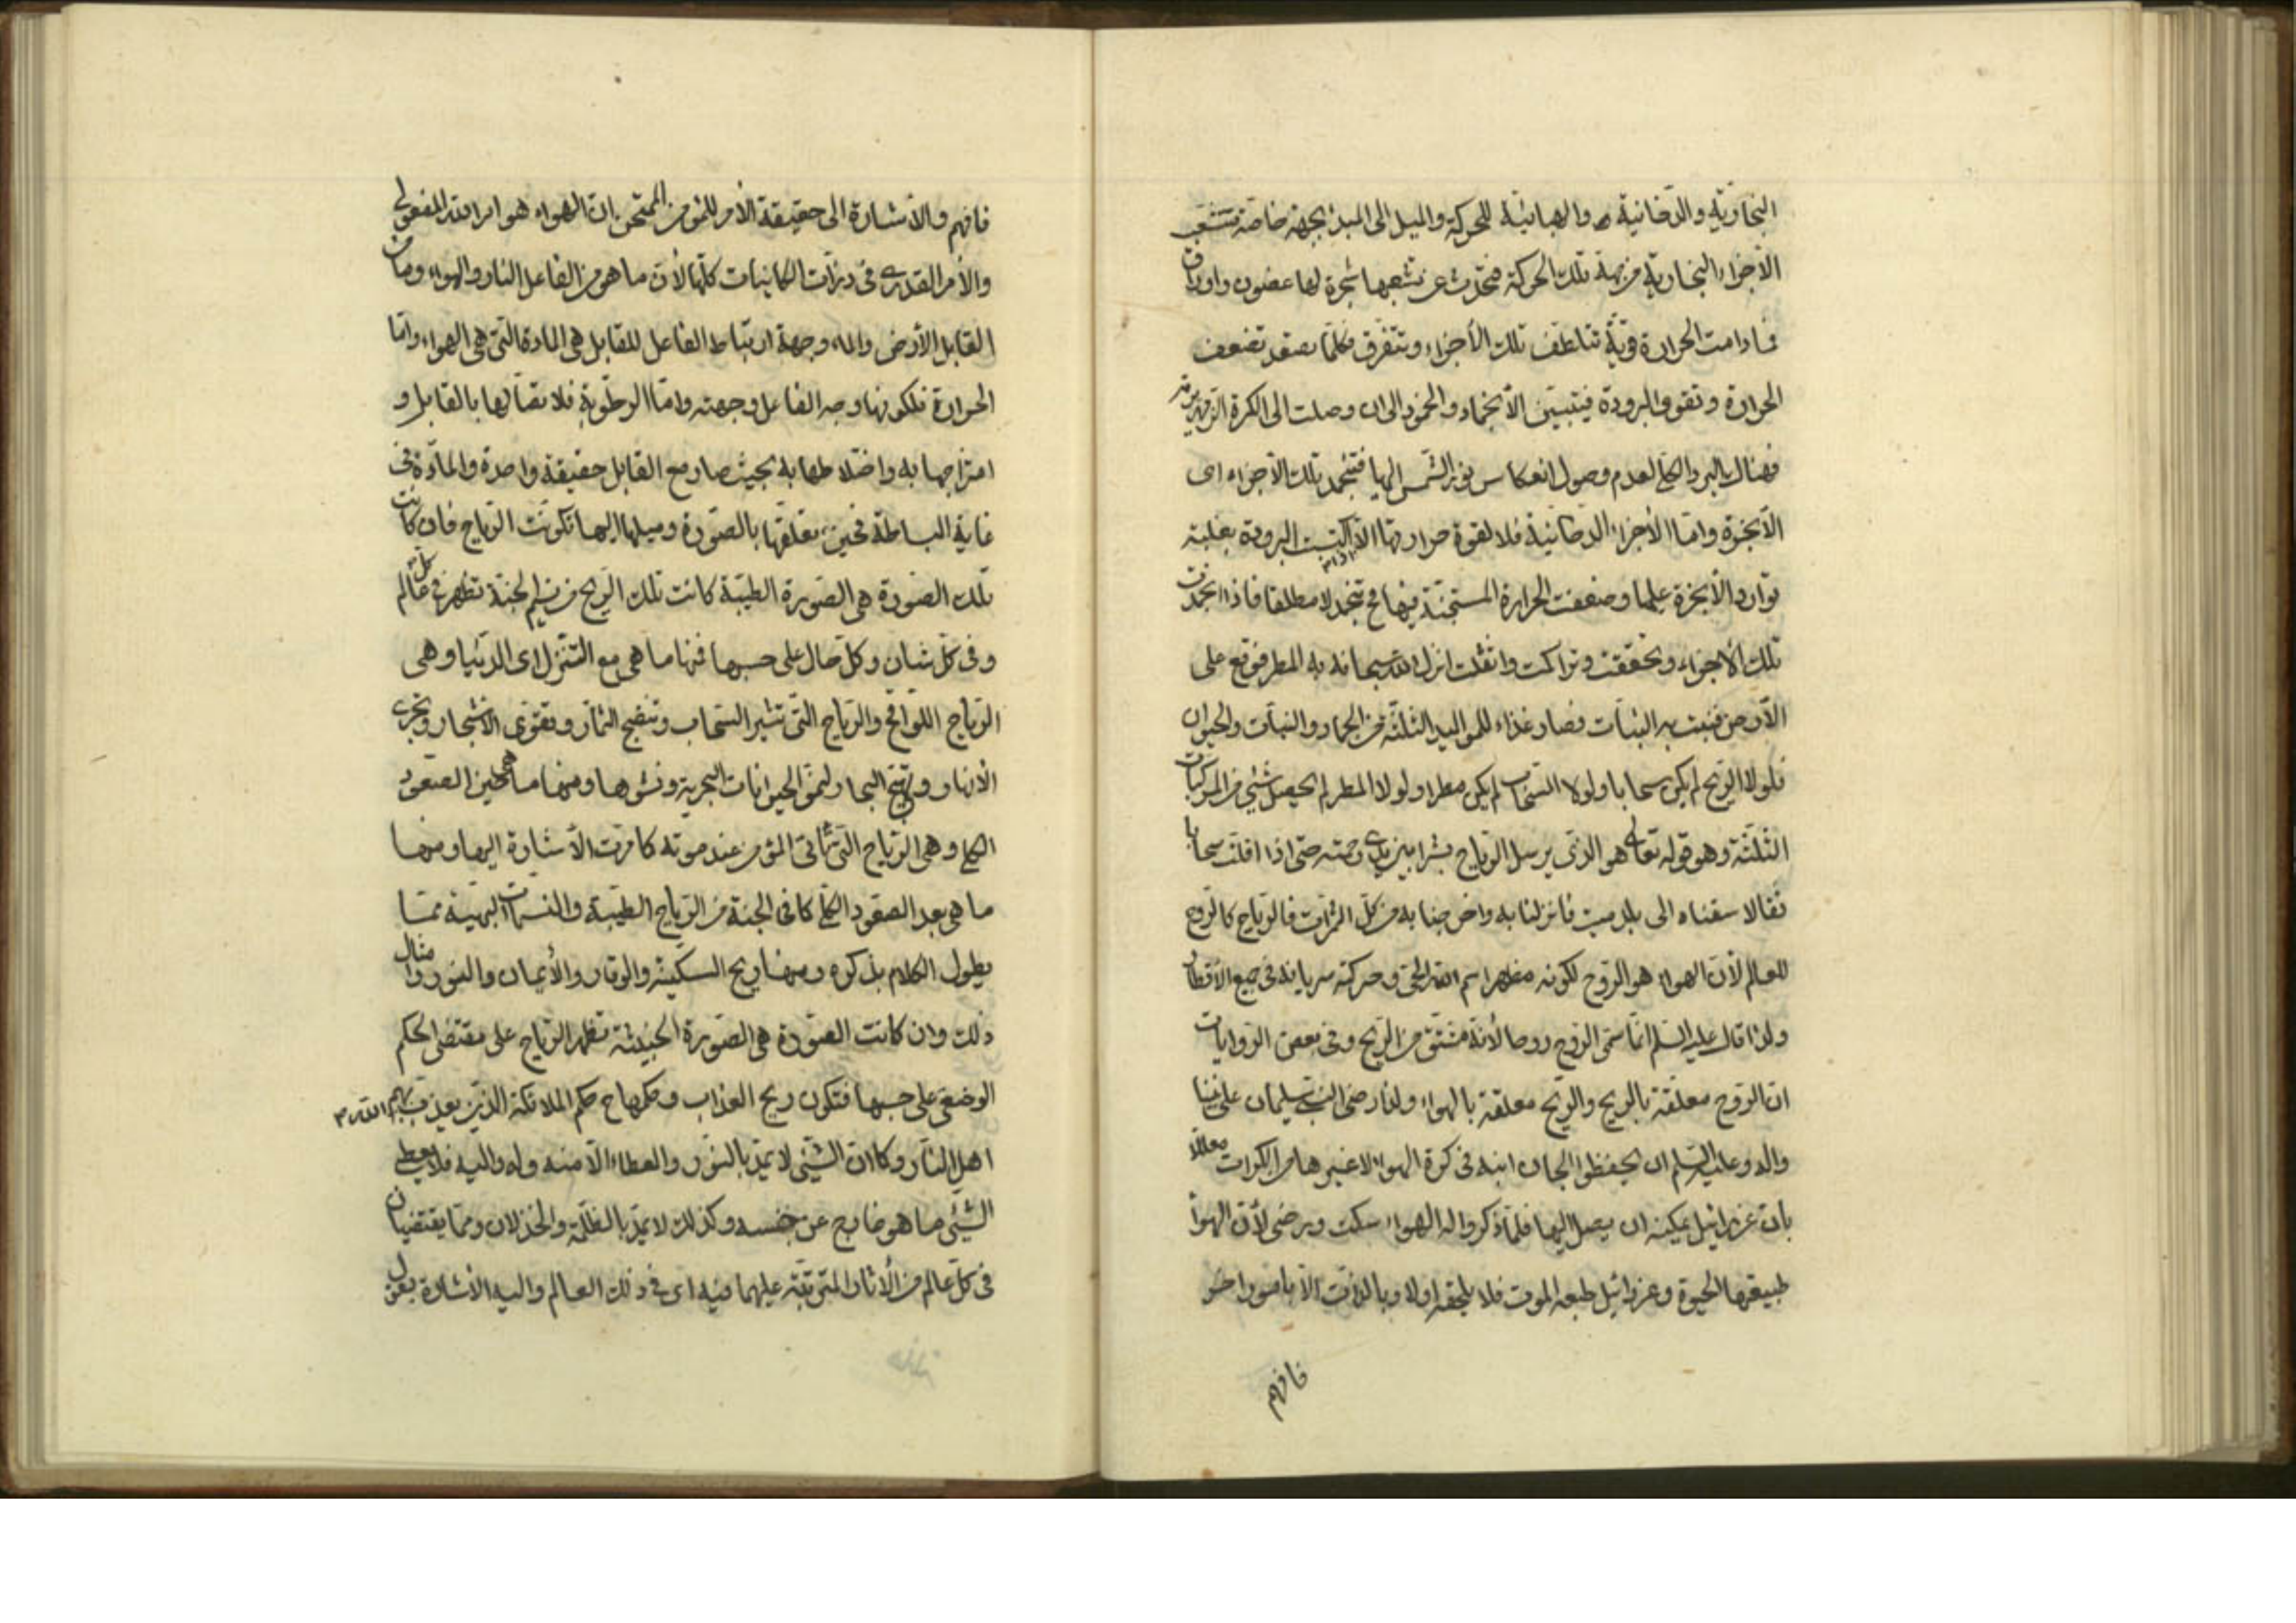 البخارية والدخانية والهبائية للحركة والميل الى المبدء بجهة خاصة فتشعب
الأجزاء البخارية من جهة تلك الحركة فتحدث عن تشعبها شجرة لها غصون واوراق
فمادامت الحرارة قوية تتلطف تلك الأجزاء وتتفرق فكلما تصعد تضعف
الحرارة وتقوى البرودة فيتبين الأنجماد والخمود الى ان وصلت الى الكرة الزمهريرية
فهناك البرد الكلى لعدم وصول انعكاس نور الشمس اليها فتنجمد تلك الأجزاء اى
الأبخرة واما الأجزاء الدخانية فلا لقوة حرارتها الا اذا اكتسبت البرودة بغلبة
توارد الأبخرة عليها وضعفت الحرارة المستجنة فيها فح تنجمد لا مطلقا فاذا انجمدت
تلك الأجزاء وتحققت وتراكمت واثقلت انزل الله سبحانه به المطر فوقع على
الأرض فنبت به النبات فصار غذاء للمواليد الثلثة من الجماد والنبات والحيوان
فلولا الريح لم يكن سحابا ولولا السحاب لم يكن مطرا ولولا المطر لم يحصل شيئ من المركبات
الثلثة وهو قوله تعالى هو الذى يرسل الرياح بشرا بين يدى رحمته حتى اذا اقلت سحابا
ثقالا سقناه الى بلد ميت فانزلنا به واخرجنا به من كل الثمرات فالرياح كالروح
للعالم لأن الهواء هو الروح لكونه مظهر اسم الله الحى وحركته سريانه فى جميع الأقطار
ولذا قال عليه السلم انما سمى الروح روحا لأنه مشتق من الريح وفى بعض الروايات
ان الروح معلقة بالريح والريح معلقة بالهواء ولذا رضى النبى سليمان على نبينا
واله وعليه السلم ان يحفظوا الجان ابنه فى كرة الهواء لا غيرها من الكرات معللا
بان عزرائيل يمكنه ان يصل اليها فلما ذكروا له الهواء سكت ورضى لأن الهواء
طبيعتها الحيوة وعزرائيل طبعه الموت فلا يلحقه اولا وبالذات الا بامور اخر
فافهم
فافهم والأشارة الى حقيقة الأمر للمؤمن الممتحن ان الهواء هو امر الله المفعولى
والأمر القدرى فى ذرات الكاينات كلها لأن ما هو من الفاعل النار والهواء وما من
القابل الأرض والماء وجهة ارتباط الفاعل للقابل هى المادة التى هى الهواء واما
الحرارة فلكونها وجه الفاعل وجهته واما الرطوبة فلاتصالها بالقابل و
امتزاجها به واختلاطها به بحيث صار مع القابل حقيقة واحدة والمادة فى
غاية البساطة فحين تعلقها بالصورة وميلها اليها تكونت الرياح فان كانت
تلك الصورة هى الصورة الطيبة كانت تلك الريح من نسيم الجنة تظهر فى كل عالم
وفى كل شان وكل حال على حسبها فمنها ما هى مع التنزل اى الدنيا وهى
الرياح اللواقح والرياح التى تثير السحاب وتنضج الثمار وتقوى الأشجار وتجرى
الأنهار وتهيج البحار ولنمو الحيوانات البحرية ونشوها ومنها ما هى حين الصعود
الكلى وهى الرياح التى تاتى المؤمن عند موته كما مرت الأشارة اليها ومنها
ما هى بعد الصعود الكلى كما فى الجنة من الرياح الطيبة والنسمات البهية مما
يطول الكلام بذكره ومنها ريح السكينة والوقار والأيمان والنور وامثال
ذلك وان كانت الصورة هى الصورة الخبيثة تظهر الرياح على مقتضى الحكم
الوضعى على حسبها فتكون ريح العذاب وحكمها ح حكم الملائكة الذين يعذب بهم الله
اهل النار وكما ان الشيئ لا يمد بالنور والعطاء الا منه وله واليه فلا يعطى
الشيئ ما هو خارج عن جنسه وكذلك لا يمد بالظلمة والخذلان وما يقتضيان
فى كل عالم من الأثار المترتبة عليهما فيه اى فى ذلك العالم واليه الأشارة بقول